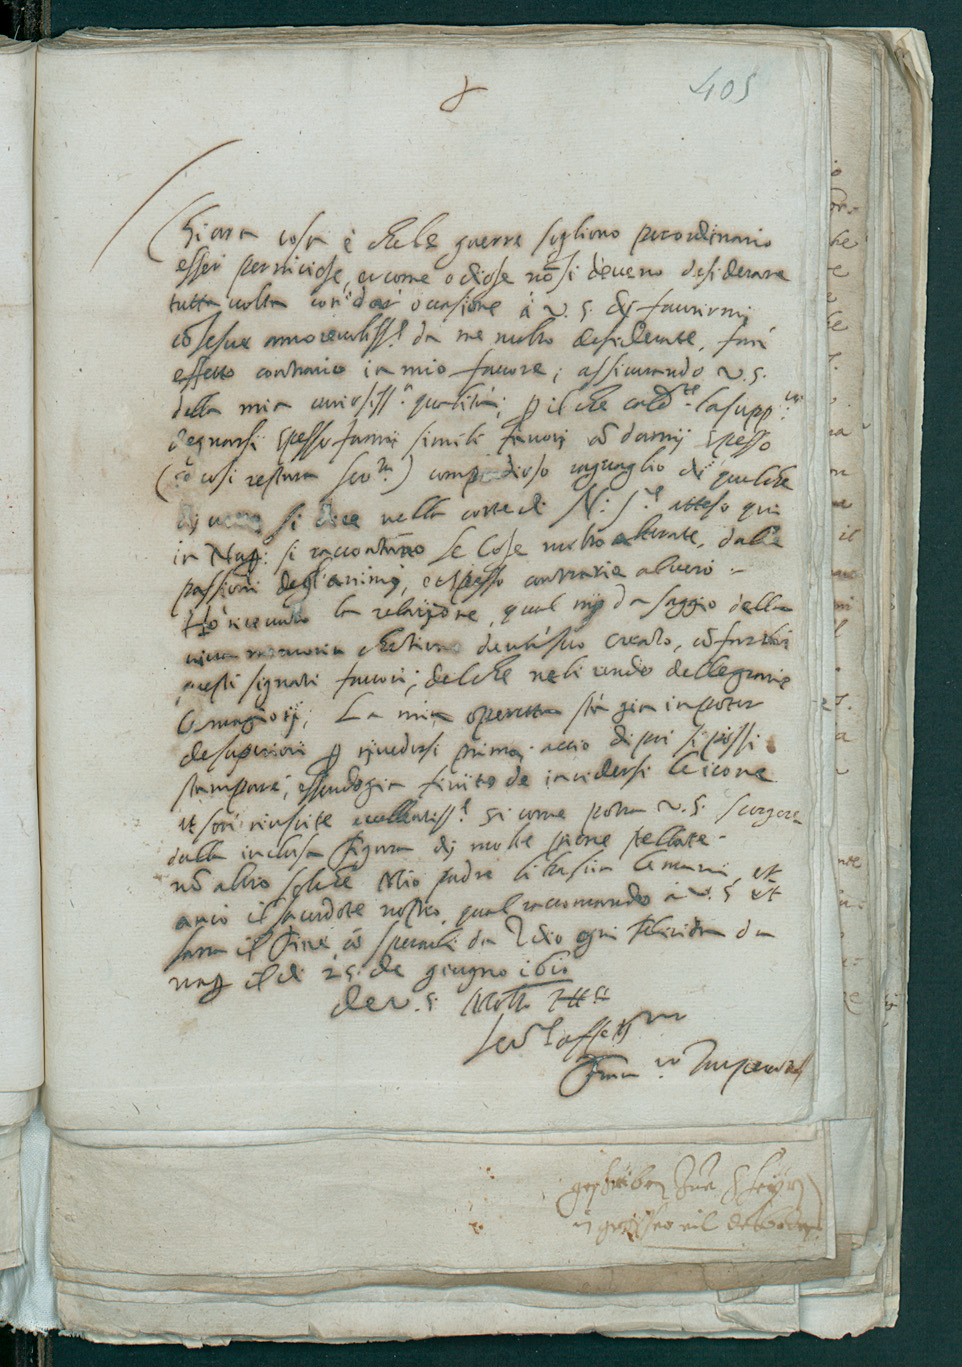 405
Chiara cosa è che le guerre sogliono per ordinario
esser perniciose, et come odiose nõ si deveno desiderare
tutta uolta con dar occasione à V. S. di fauorirmi
cõ le sue amoreuoliss.e da me molto desiderate, farà
effetto contrario in mio fauore; assicurando V. S.
della mia curiosiss.a qualità; il che cald.te la supp.co
degnarsi spesso farmi simili fauori cõ darmi spesso
cosi restara ser.ta) compendioso raguaglio di qualche
si dice nella corte di N. S.re atteso qui
in Nap. si raccontano le cose molto alterate, dalle
passioni degl'animi, e spesso contrarie al uero.
Hò riceuuto la relatione, qual mi da saggio della
uiua memoria che tiene de un suo creato, cõ farli
questi signati fauori; del che ne li rendo delle gratie
maggiori; La mia operetta stà gia in poter
de superiori riuedersi prima, accio di poi si possi
stampare, essendo gia finito de incidersi le icone
et son riuscite eccellentiss.e si come potra V. S. scorgere
dalla inclusa figura di molte pietre stellate.
nõ altro solo che Mio padre li bascia le mani, et
anco il sacerdote nostro, qual raccomando à V. S. et
farra il fine cõ pregarli da Idio ogni felicità da
nap il di 25 de giugno 1610
de V. S. Molto Ill.re
Ser.re affett.mo
Fran.co Imperato